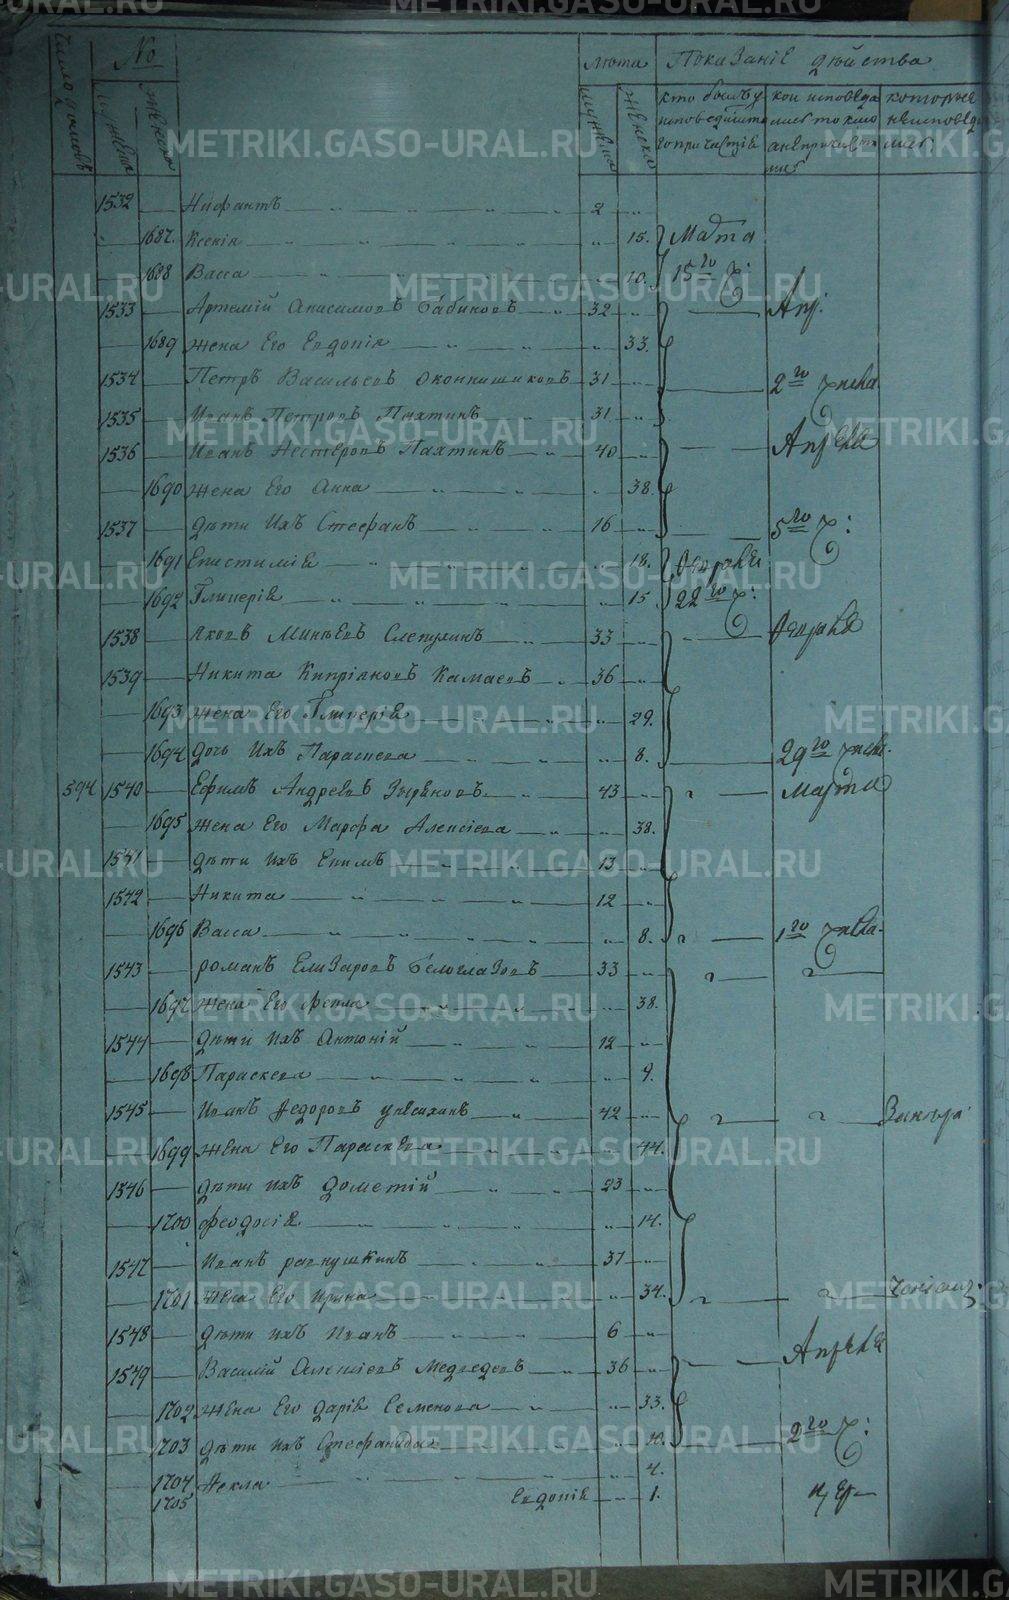 число домовъ № Лѣта Показаніе дѣйства
мужеска женска мужеска женска кто былъ у исповеди и святаго причастія кои исповедались токмо а не причастились которыя не исповедались
1532 Нифантъ 2
1687. Ксенія 15. Марта
1688 Васса 10. 15го ч:
1533 Артемій Анисимовъ Бабиновъ 32 Апр:
1689 жена Его Евдокія 33.
1534 Петръ Васильевъ Оконнишниковъ 31 2го
1535 Иванъ Петровъ Пахтинъ 31
1536 Иванъ Нестеровъ Пахтинъ 40 Апреля
1690 жена Его Анна 38.
1537 дѣти ихъ Стефанъ 16 5го ч:
1691 Епистимія 18. Февраля
1692 Гликерія 15 22го ч:
1538 Яковъ Минѣевъ Слепухинъ 33 Февраля
1539 Никита Кипріяновъ Камаевъ 36
1693 жена Его Гликерія 29.
1694 дочь ихъ Параскева 8. 29го
594 1540 Ефимъ Андреевъ Зыряновъ 43 Марта
1695 жена Его Марфа Алексіева 38.
1541 дѣти ихъ Екимъ 13
1542 Никита 12
1696 Васса 8. 1го
1543 романъ Елизаровъ Белоглазовъ 33
1697 жена Его Фекла 38.
1544 дѣти ихъ Антоній 12
1698 Параскева 9.
1545 Иванъ Федоровъ 42
1699 жена Его Параскева 44.
1546 дѣти ихъ Дометій 23
1700 Феодосія 14.
1547 Иванъ 37
1701 жена Его Ирина 34.
1548 дѣти ихъ Иванъ 6
1549 Василій Алексіевъ Медведевъ 36 Апреля
1702 жена Его Дарія Семенова 33.
1703 дѣти ихъ Стефанида 10. 2го ч:
1704 Фекла 4.
1705 Евдокія 1.
METRIKI.GASO-URAL.RU